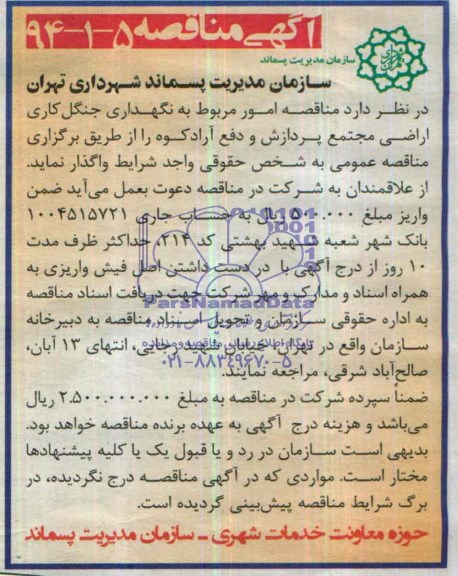 آگهی مناقصه ۵-۱-۹۴
سازمان مدیریت پسماند
سازمان مدیریت پسماند شهرداری تهران
در نظر دارد مناقصه امور مربوط به نگهداری جنگل کاری
اراضی مجتمع پردازش و دفع آرادکوه را از طریق برگزاری
مناقصه عمومی به شخص حقوقی واجد شرایط واگذار نماید.
از علاقمندان به شرکت در مناقصه دعوت بعمل می‌آید ضمن
واریز مبلغ ۵۰۰.۰۰۰ ریال به حساب جاری ۱۰۰۴۵۱۵۷۲۱
بانک شهر شعبه شهید بهشتی کد ۲۱۴، حداکثر ظرف مدت
۱۰ روز از درج آگهی با در دست داشتن اصل فیش واریزی به
همراه اسناد و مدارک و مهر شرکت جهت دریافت اسناد مناقصه
ParsNamadData
به اداره حقوقی سازمان و تحویل اسناد مناقصه به دبیرخانه
سازمان واقع در تهران، خیابان شهید رجایی، انتهای ۱۳ آبان،
۰۲۱-۸۸۳۴۹۶۷۰-۵
صالح‌آباد شرقی، مراجعه نمایند.
ضمناً سپرده شرکت در مناقصه به مبلغ ۲.۵۰۰.۰۰۰.۰۰۰ ریال
می‌باشد و هزینه درج آگهی به عهده برنده مناقصه خواهد بود.
بدیهی است سازمان در رد و یا قبول یک یا کلیه پیشنهادها
مختار است. مواردی که در آگهی مناقصه درج نگردیده، در
برگ شرایط مناقصه پیش‌بینی گردیده است.
حوزه معاونت خدمات شهری ـ سازمان مدیریت پسماند